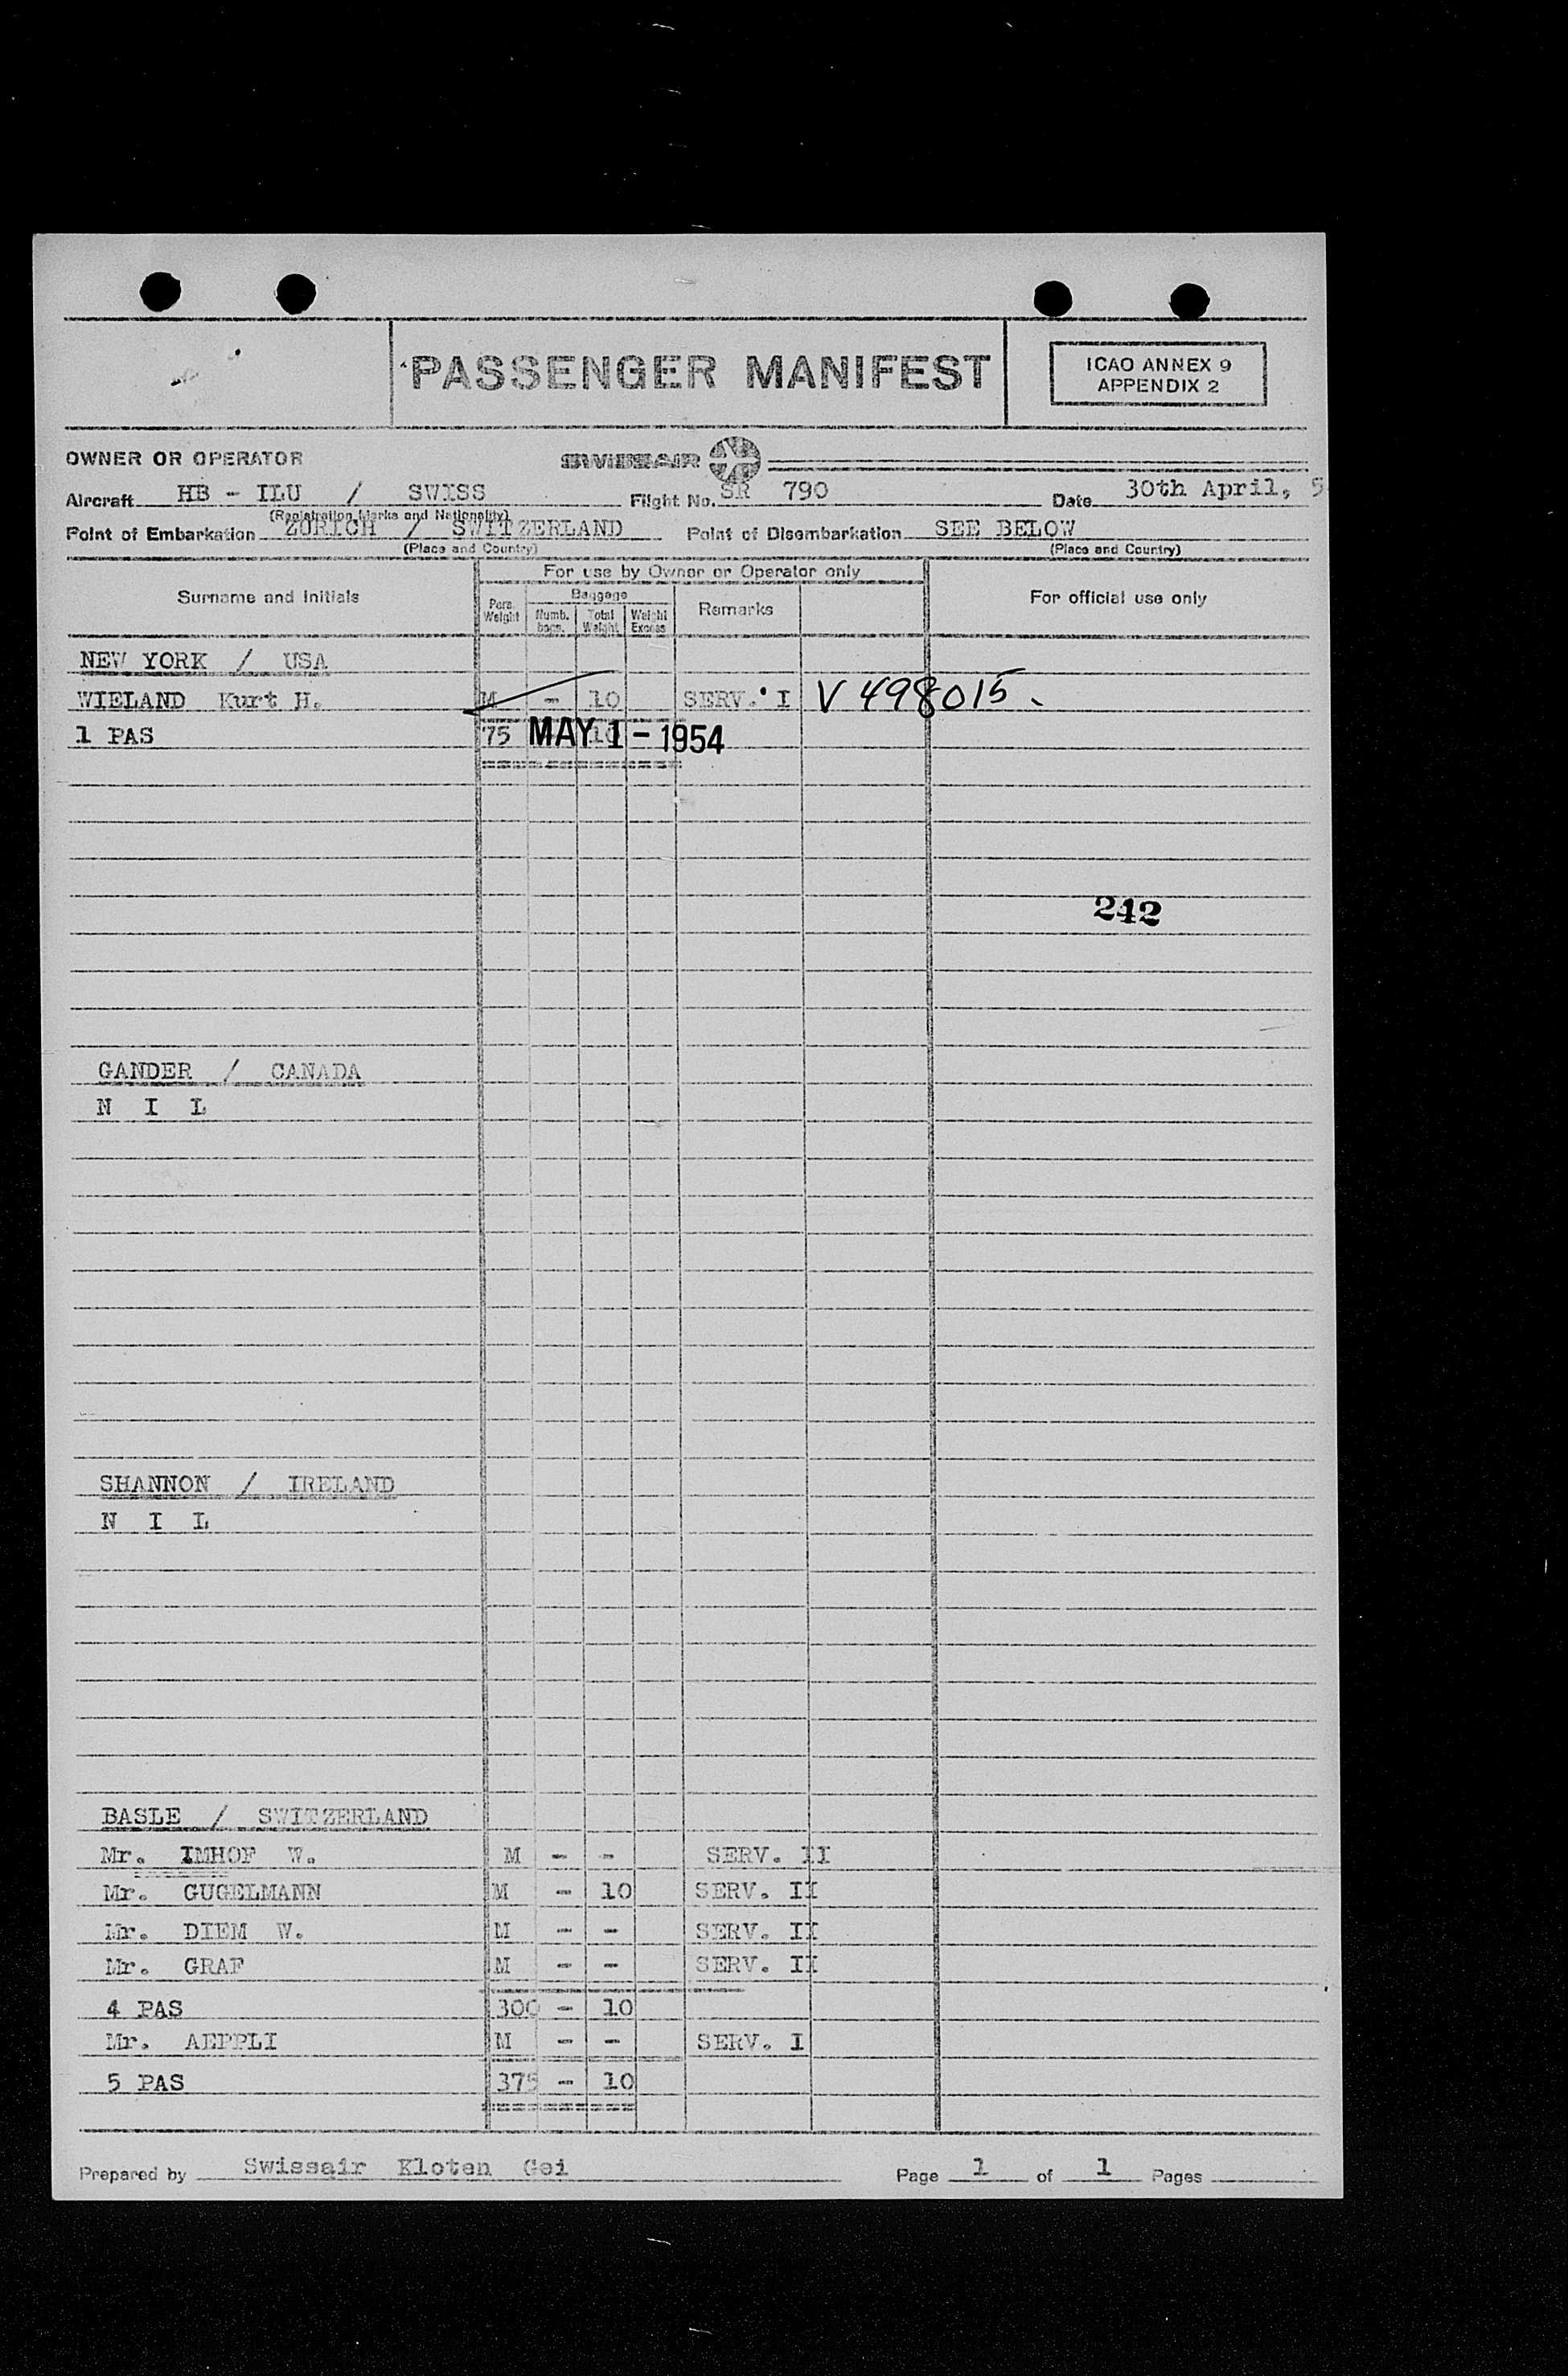 PASSENGER MANIFEST
ICAO ANNEX 9
APPENDIX 2
OWNER OR OPERATOR SWISSAIR
Aircraft HB - ILU / SWISS Flight No. SR 790 Date 30th April, 5
(Registration Marks and Nationality)
Point of Embarkation ZURICH / SWITZERLAND Point of Disembarkation SEE BELOW
(Place and Country) (Place and Country)
For use by Owner or Operator only
Surname and Initials Pers. Weight Baggage Numb. bags. Total Weight Weight Excess Remarks For official use only
NEW YORK / USA
WIELAND Kurt H. M - 10 SERV. I V 498015
1 PAS 75 10
MAY 1 - 1954
242
GANDER / CANADA
N I L
SHANNON / IRELAND
N I L
BASLE / SWITZERLAND
Mr. IMHOF W. M - - SERV. II
Mr. GUGELMANN M - 10 SERV. II
Mr. DIEM W. M - - SERV. II
Mr. GRAF M - - SERV. II
4 PAS 300 - 10
Mr. AEPPLI M - - SERV. I
5 PAS 375 - 10
Prepared by Swissair Kloten Gei Page 1 of 1 Pages